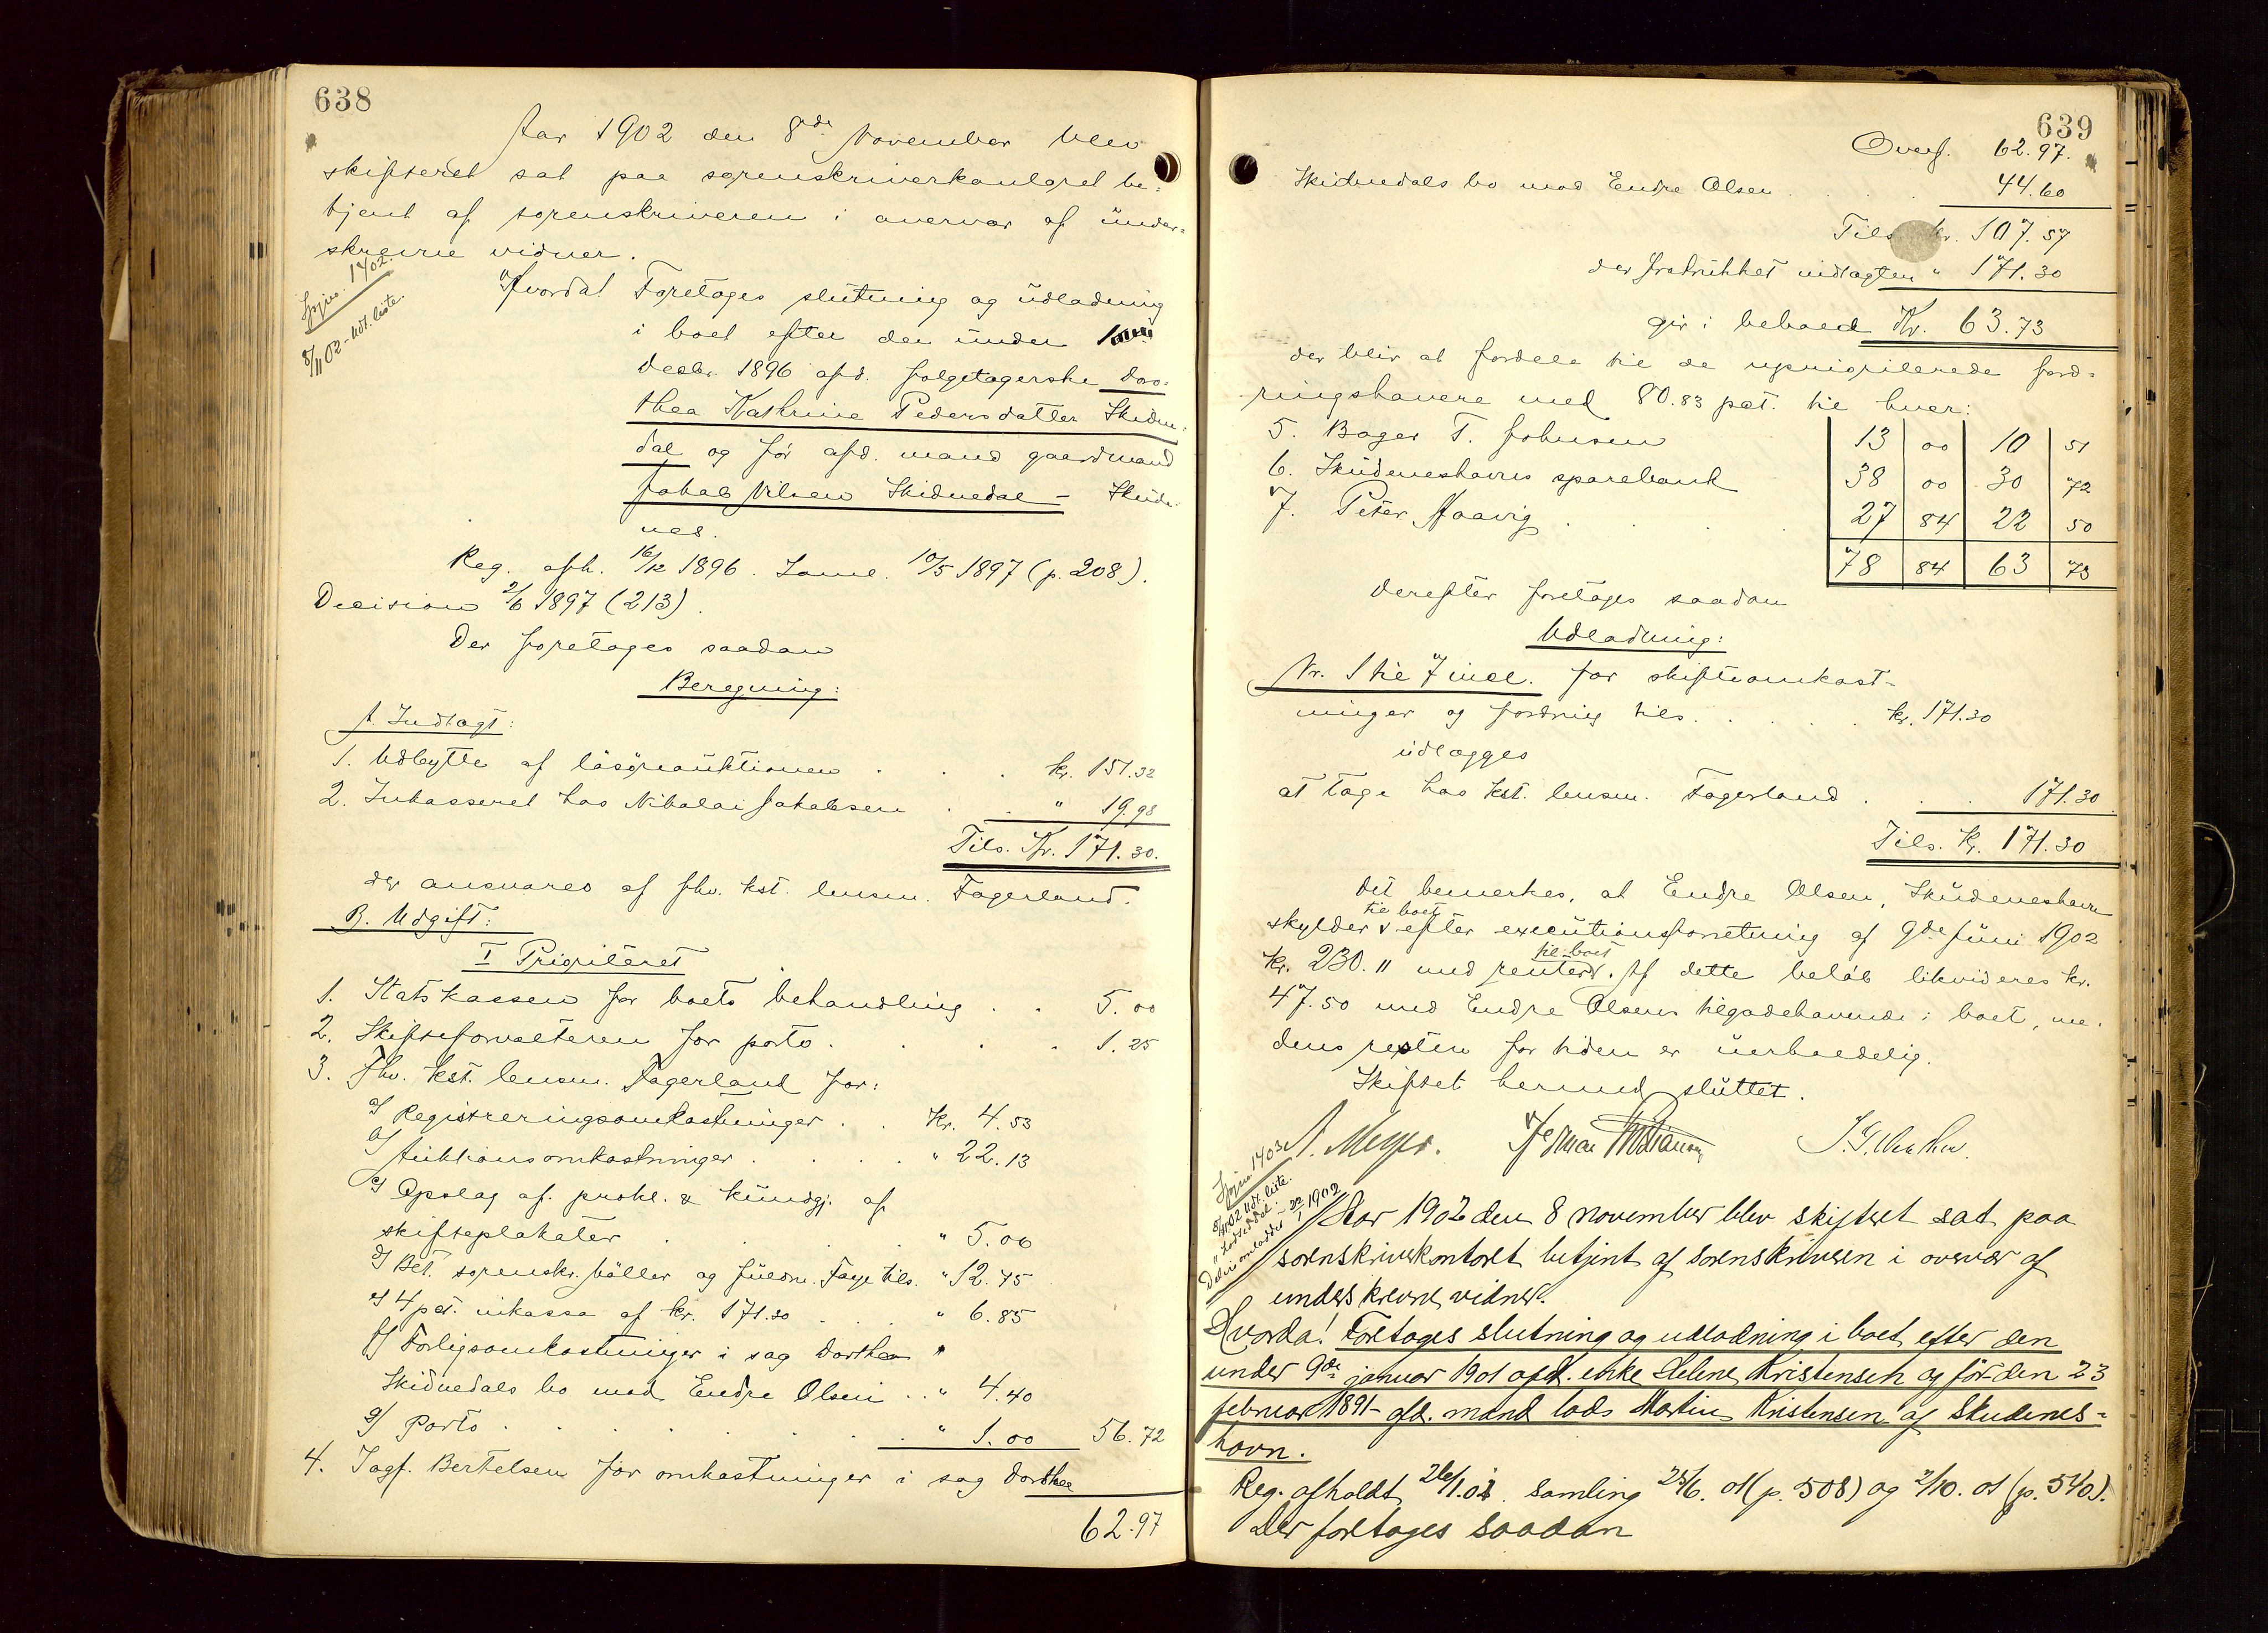 638
Aar 1902 den 8de November blev
skifteret sat paa sorenskriverkontoret be-
tjent af sorenskriveren i overvær af under-
skrevne vidner.
Hvorda! Foretages slutning og udlodning
i boet efter den under
Decbr. 1896 afd. folgetagerske Doro-
thea Kathrine Pedersdatter Skidne-
dal og før afd. mand gaardmand
Jakob Nilsen Skidnedal – Skude-
nes.
Reg. afh. 16/12 1896. Saml. 10/5 1897 (p. 208).
Decision 2/6 1897 (213).
Der foretages saadan
Beregning:
A. Indtægt:
1. Udbytte af løsøreauktionen . . . kr. 151.32
2. Inkasseret hos Nikolai Jakobsen . . " 19.98
Tils. Kr. 171.30.
der ansvares af fhv. kst. lensm. Fagerland.
B. Udgift:
I Prioriteret
1. Statskassen for boets behandling . . 5.00
2. Skifteforvalteren for porto . . . . 1.25
3. Fhv. kst. lensm. Fagerland for:
a/ Registreringsomkostninger . . Kr. 4.53
b/ Auktionsomkostninger . . . . " 22.13
c/ Opslag af prokl. & kundgj. af
skifteplakater . . . . " 5.00
d/ Bet. sorenskr. Møller og fuldm. Faye tils. " 12.75
e/ 4 pct. inkasso af kr. 171.30 . . . " 6.85
f/ Forligsomkostninger i sag Dorthea "
Skidnedals bo mod Endre Olsen . . " 4.40
g/ Porto . . . . . . . " 1.00 56.72
4. Sagf. Bertelsen for omkostninger i sag Dorthea
62.97
Hpjn. 1402.
8/11 02 – udt. liste.
639
Overf. 62.97.
Skidnedals bo mod Endre Olsen . . . . 44.60
Tils. kr. 107.57
der fratrukket indtægten " 171.30
gir i behold Kr. 63.73
der blir at fordele til de uprioriterede ford-
ringshavere med 80.83 pct. til hver:
5. Bager T. Johnsen 13 00 10 51
6. Skudeneshavns sparebank 38 00 30 72
7. Peter Haavig . . . 27 84 22 50
78 84 63 73
Derefter foretages saadan
Udlodning:
Nr. 1 til 7 incl. for skifteomkost-
ninger og fordring tils. . . . . kr. 171.30
udlægges
at tage hos kst. lensm. Fagerland . . . 171.30
Tils. Kr. 171.30
Det bemerkes, at Endre Olsen, Skudeneshavn
skylder til boet efter executionsforretning af 9de Juni 1902
kr. 230." med renter til boet. Af dette beløb likvideres kr.
47.50 med Endre Olsens tilgodehavende i boet, me-
dens resten for tiden er uerholdelig.
Skiftet hermed sluttet.
A. Meyer.
Hpjn. 1403
8/11 02 udt. liste.
" lodseddel.
22/1 1902
Aar 1902 den 8 november blev skifteret sat paa
sorenskriverkontoret betjent af sorenskriveren i overvær af
underskrevne vidner.
Hvorda! Foretages slutning og udlodning i boet efter den
under 9de januar 1901 afd. enke Helene Kristensen og før den 23
februar 1891 afd. mand lods Martin Kristensen af Skudenes-
havn.
Reg. afholdt 26/1.01. Samling 25/6. 01 (p. 508) og 2/10. 01 (p. 540).
Der foretages saadan